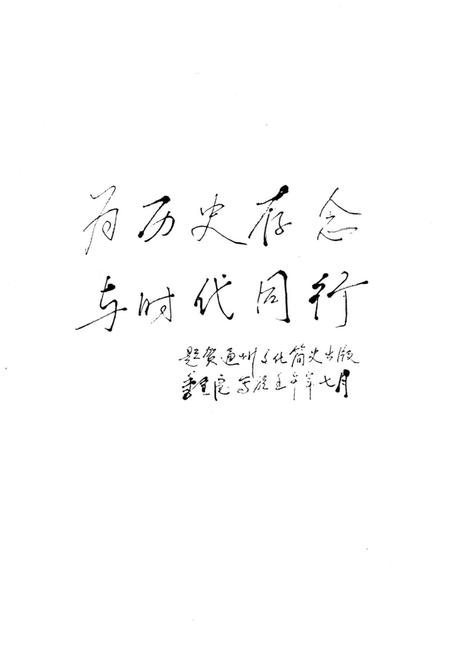 为历史存念
与时代同行
题贺通州文化简史出版
壬午年七月